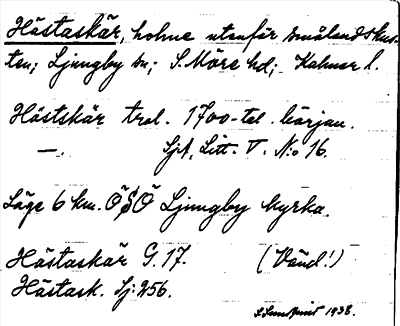 Hästaskär, holme utanför smålandskus-
ten; Ljungby sn; S. Möre hd; Kalmar l.
Hästskär trol. 1700-tal. början.
—. Sjk, Litt. V. N:o 16.
Läge 6 km. ÖSÖ Ljungby kyrka.
Hästaskär G. 17. (Vänd!)
Hästask. Sj: 256.
1938.